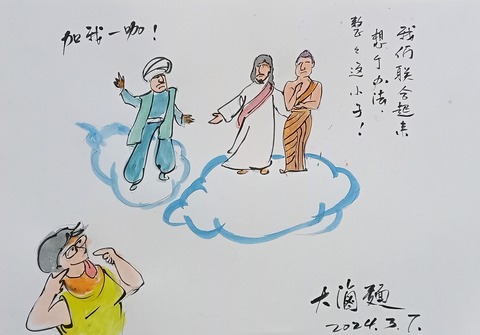 我们联合起来
想个办法，
整々这小子！
加我一咖！
大滷麵
2024.3.7.